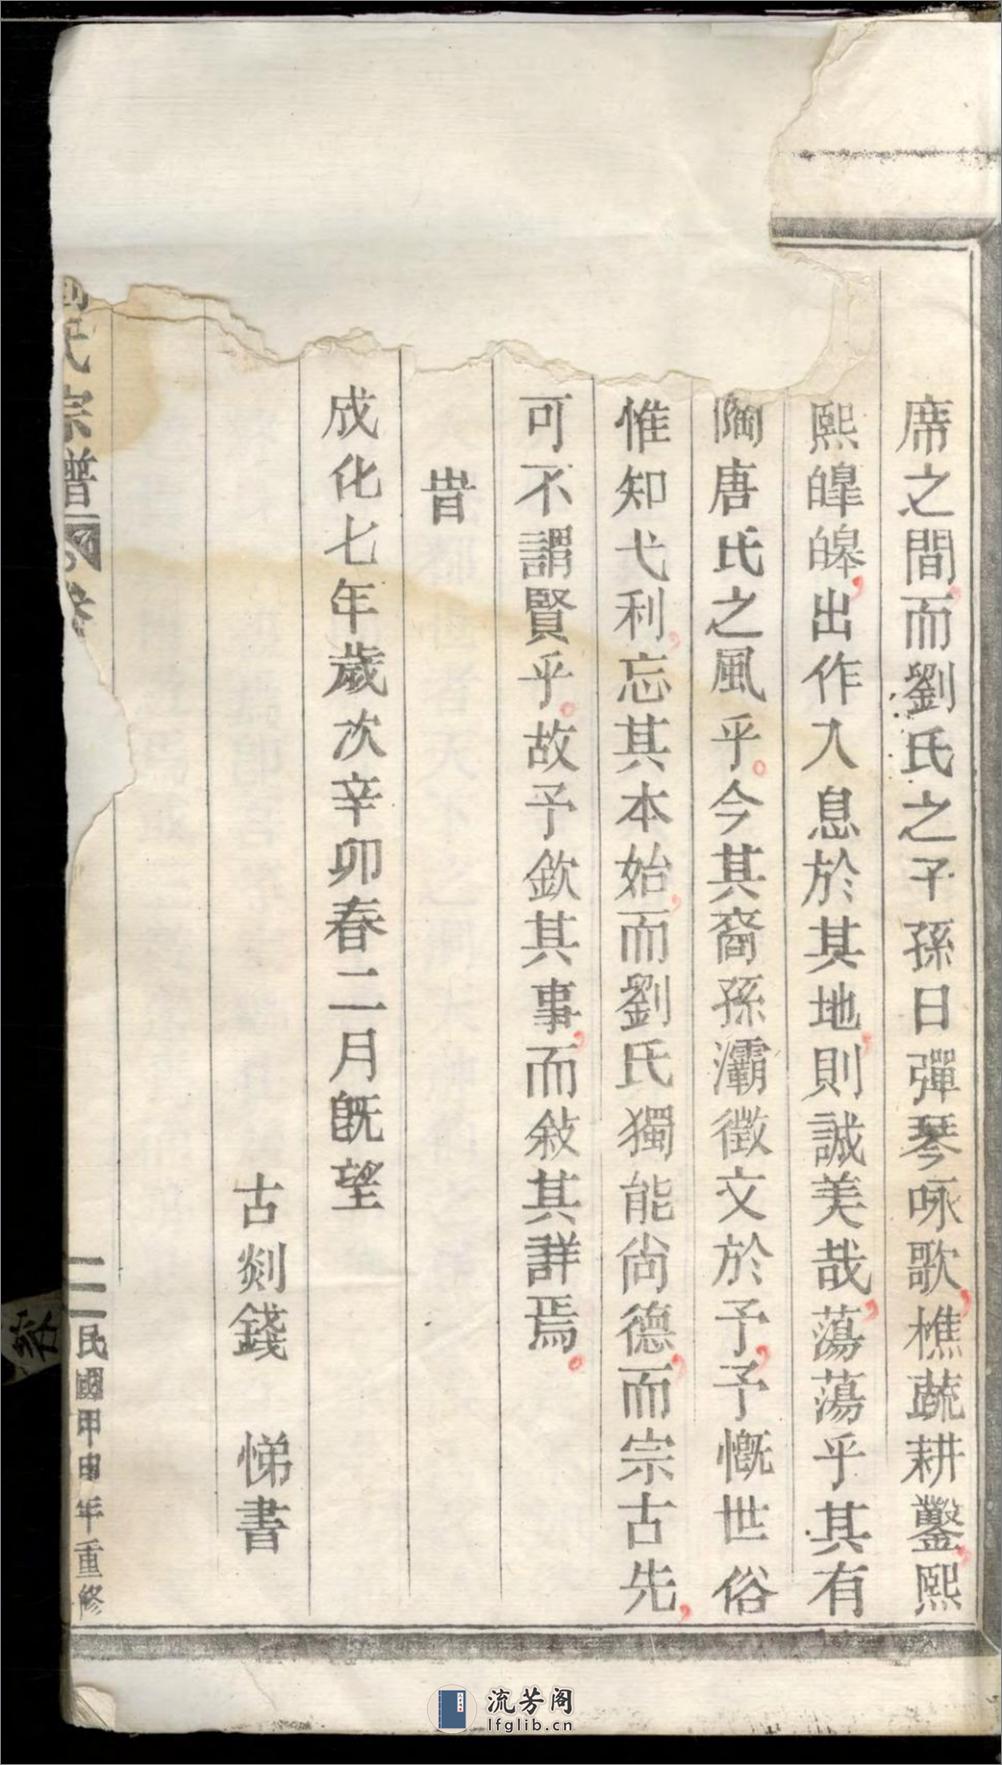 席之間而劉氏之子孫日彈琴咏歌，樵蔬耕鑿，熙
熙皥皞，出作入息於其地，則誠美哉，蕩蕩乎其有
陶唐氏之風乎。今其裔孫灞徵文於予，予慨世俗
惟知弋利，忘其本始，而劉氏獨能尚德，而宗古先，
可不謂賢乎。故予欽其事，而敍其詳焉。
旹
成化七年歲次辛卯春二月旣望
古剡錢 悌書
氏宗譜
二 民國甲申年重修
流芳阁
lfglib.cn